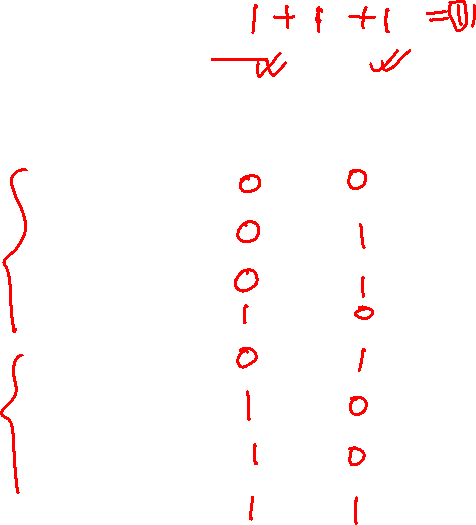 1 + 1 + 1 = 1
0 0
0 1
0 1
1 0
0 1
1 0
1 0
1 1